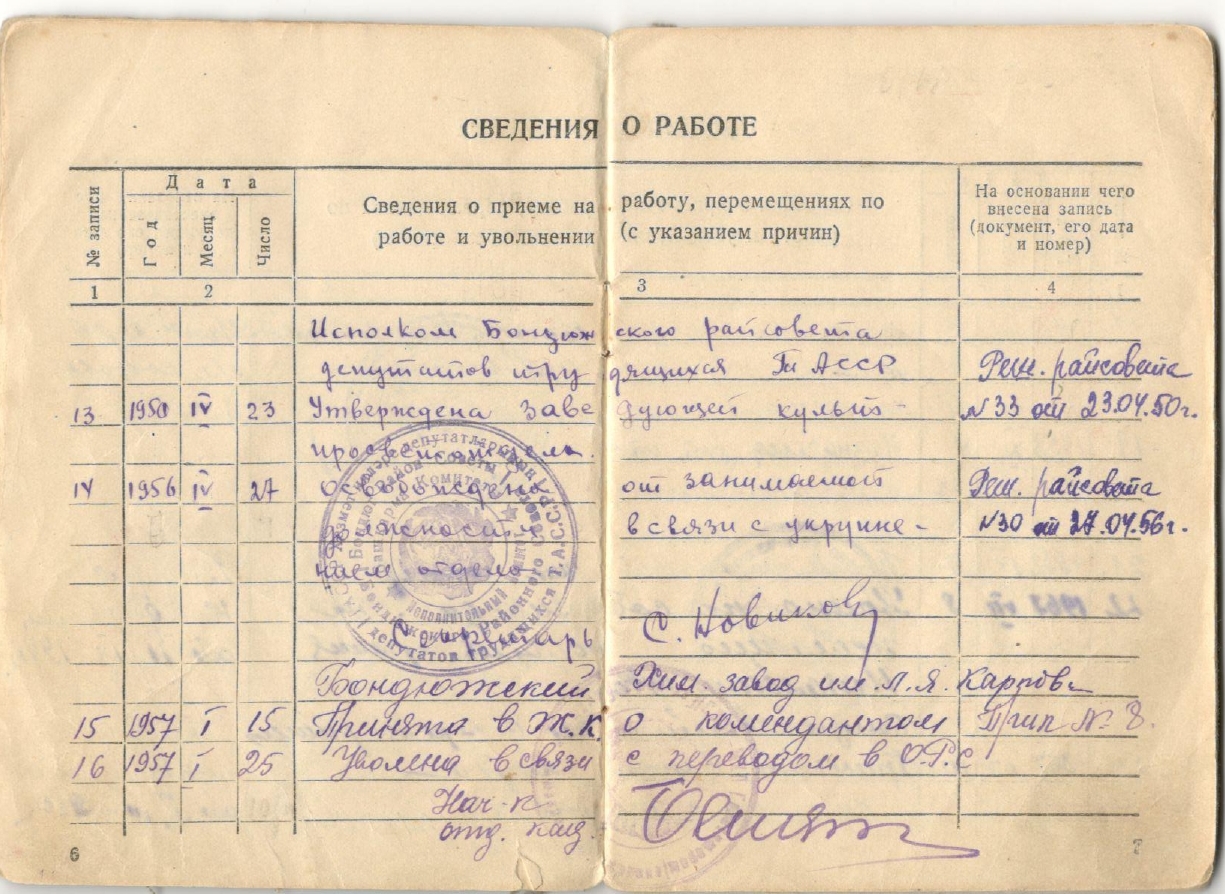 СВЕДЕНИЯ О РАБОТЕ
№ записи
Дата
Год
Месяц
Число
Сведения о приеме на работу, перемещениях по
работе и увольнении (с указанием причин)
На основании чего
внесена запись
(документ, его дата
и номер)
1 2 3 4
Исполком Бондюжского райсовета
депутатов трудящихся ТАССР Реш. райсовета
13 1950 IV 23 Утверждена Заведующей культ- №33 от 23.04.50г.
просветотдела.
14 1956 IV 27 Освобождена от занимаемой Реш. райсовета
должности в связи с укрупне- №30 от 27.04.56г.
нием отдела
Секретарь С. Новиков
Бондюжский Хим. завод им. Л. Я. Карпова
15 1957 I 15 Принята в Ж.К.О комендантом Прик № 8.
16 1957 I 25 Уволена в связи с переводом в ОРС
Нач-к
отд. кад.
6 7